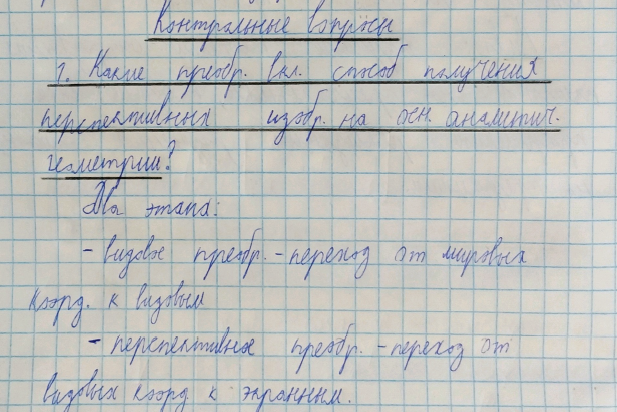 Контрольные вопросы
1. Какие преобр. вкл. способ получения
перспективных изобр. на осн. аналитич.
геометрии?
Два этапа:
- видовое преобр. - переход от мировых
коорд. к видовым
- перспективное преобр. - переход от
видовых коорд к экранным.